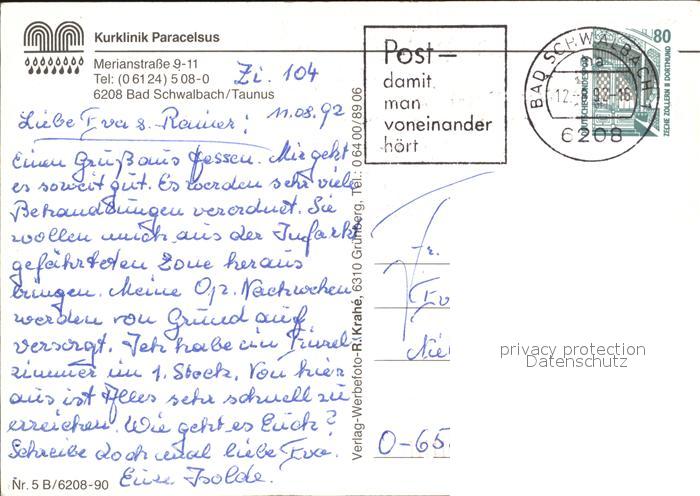 Kurklinik Paracelsus
Merianstraße 9-11
Tel: (06124) 508-0
6208 Bad Schwalbach/Taunus
Zi. 104
11.08.92
Liebe Eva & Rainer!
Einen Gruß aus Hessen. Mir geht
es soweit gut. Es werden sehr viele
Behandlungen verordnet. Sie
wollen mich aus der Infarkt
gefährteten Zone heraus
bringen. Meine Op. Nachwehen
werden von Grund auf
versorgt. Ich habe ein Einzel
zimmer im 1. Stock. Von hier
aus ist Alles sehr schnell zu
erreichen. Wie geht es Euch?
Schreibe doch mal liebe Eva.
Eure Isolde.
Nr. 5 B/6208-90
Verlag-Werbefoto-R. Krahé, 6310 Grünberg, Tel.: 06400/8906
Post–
damit
man
voneinander
hört
BAD SCHWALBACH 1
6208
80
DEUTSCHE BUNDESPOST
ZECHE ZOLLERN II DORTMUND
Fr.
Ev
O-65
privacy protection
Datenschutz